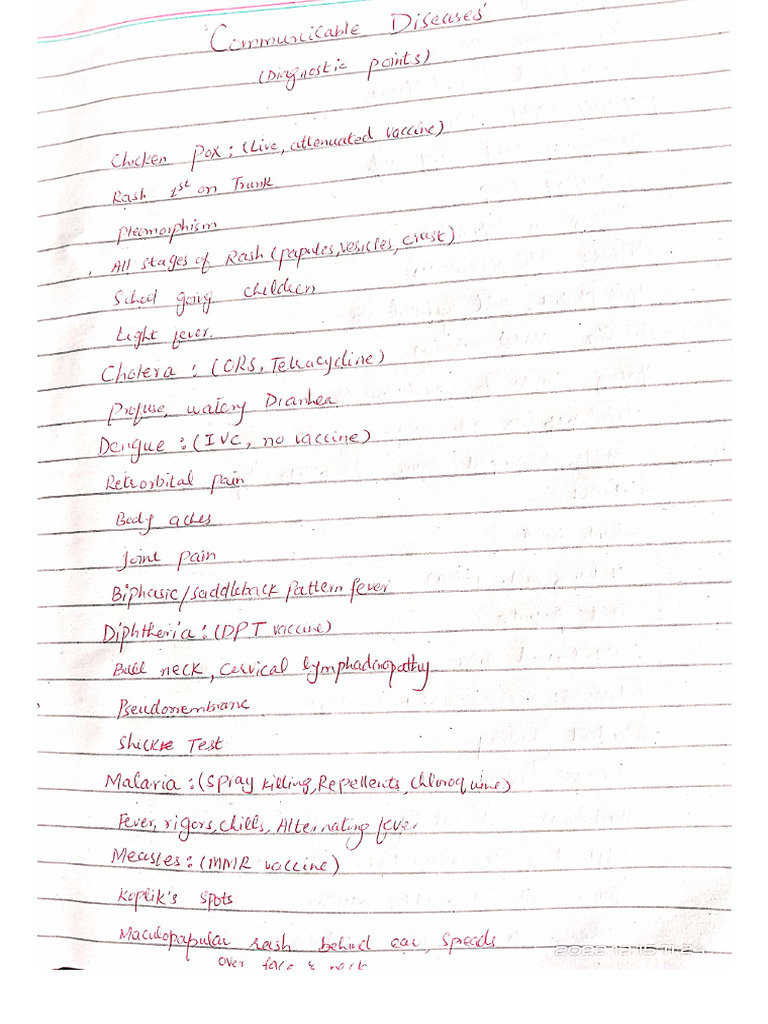 "Communicable Diseases"
(Diagnostic points)
Chicken pox : (Live, attenuated vaccine)
Rash 1st on Trunk
pleomorphism
All stages of Rash (papules, vesicles, crust)
School going children
Light fever.
Cholera : (ORS, Tetracycline)
profuse, watery Diarrhea
Dengue : (IVC, no vaccine)
Retrorbital pain
Body aches
Joint pain
Biphasic/saddleback pattern fever
Diphtheria : (DPT vaccine)
Bull neck, cervical lymphadenopathy
Pseudomembrane
Shickte Test
Malaria : (spray killing, Repellents, chloroquine)
Fever, rigors, chills, Alternating fever
Measles : (MMR vaccine)
Koplik's spots
Maculopapular rash behind ear, spreads
over face & neck
2022.12.15 11:24